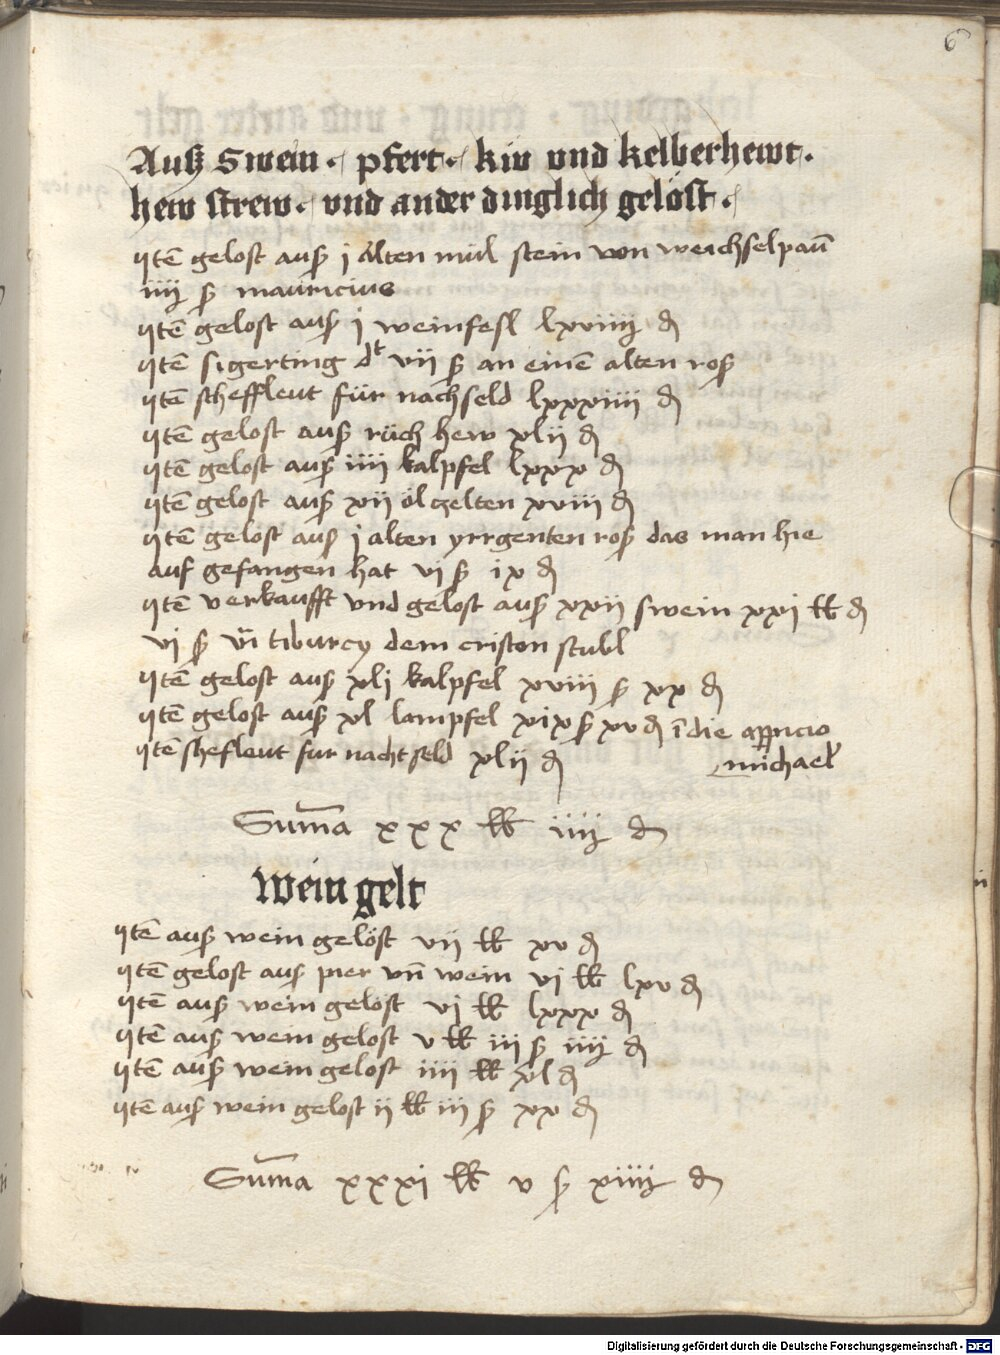 6
Auß Swein · pfert · kiv vnd kelberhewt ·
hew strew · vnd ander dinglich gelöst ·
Itē gelost auß j alten mül stein von weichselpaū
iiij ß mauricius
Itē gelost auß j weinfesl lxviiij ₰
Itē sigerting dt vii ß an einē alten roß
Itē scheffleut für nachseld lxxxiiii ₰
Itē gelost auß rüch hew xlij ₰
Itē gelost auß iiii kalpfel lxxx ₰
Itē gelost auß xii öl zelten xviii ₰
Itē gelost auß j alten yrrgenten roß das man hie
auf gefangen hat vi ß ix ₰
Itē verkaufft vnd gelost auß xxii swein xxi ℔ ₰
vi ß tiburcy dem criston stubl
Itē gelost auß xli kalpfel xviii ß xx ₰
Itē gelost auß xl lampfel xix ß xv ₰ ī die
Itē shefleut fur nachtseld xlii ₰ michael
Sum̄a xxx ℔ iiij ₰
Wein gelt
Itē auß wein gelöst vii ℔ xv ₰
Itē gelost auß pier vn̄ wein vi ℔ lxv ₰
Itē auß wein gelost vj ℔ lxxx ₰
Itē auß wein gelost v ℔ iij ß iiij ₰
Itē auß wein gelost iiii ℔ xl ₰
Itē auß wein gelost ij ℔ iij ß xx ₰
Sum̄a xxxi ℔ v ß xiiij ₰
Digitalisierung gefördert durch die Deutsche Forschungsgemeinschaft - DFG